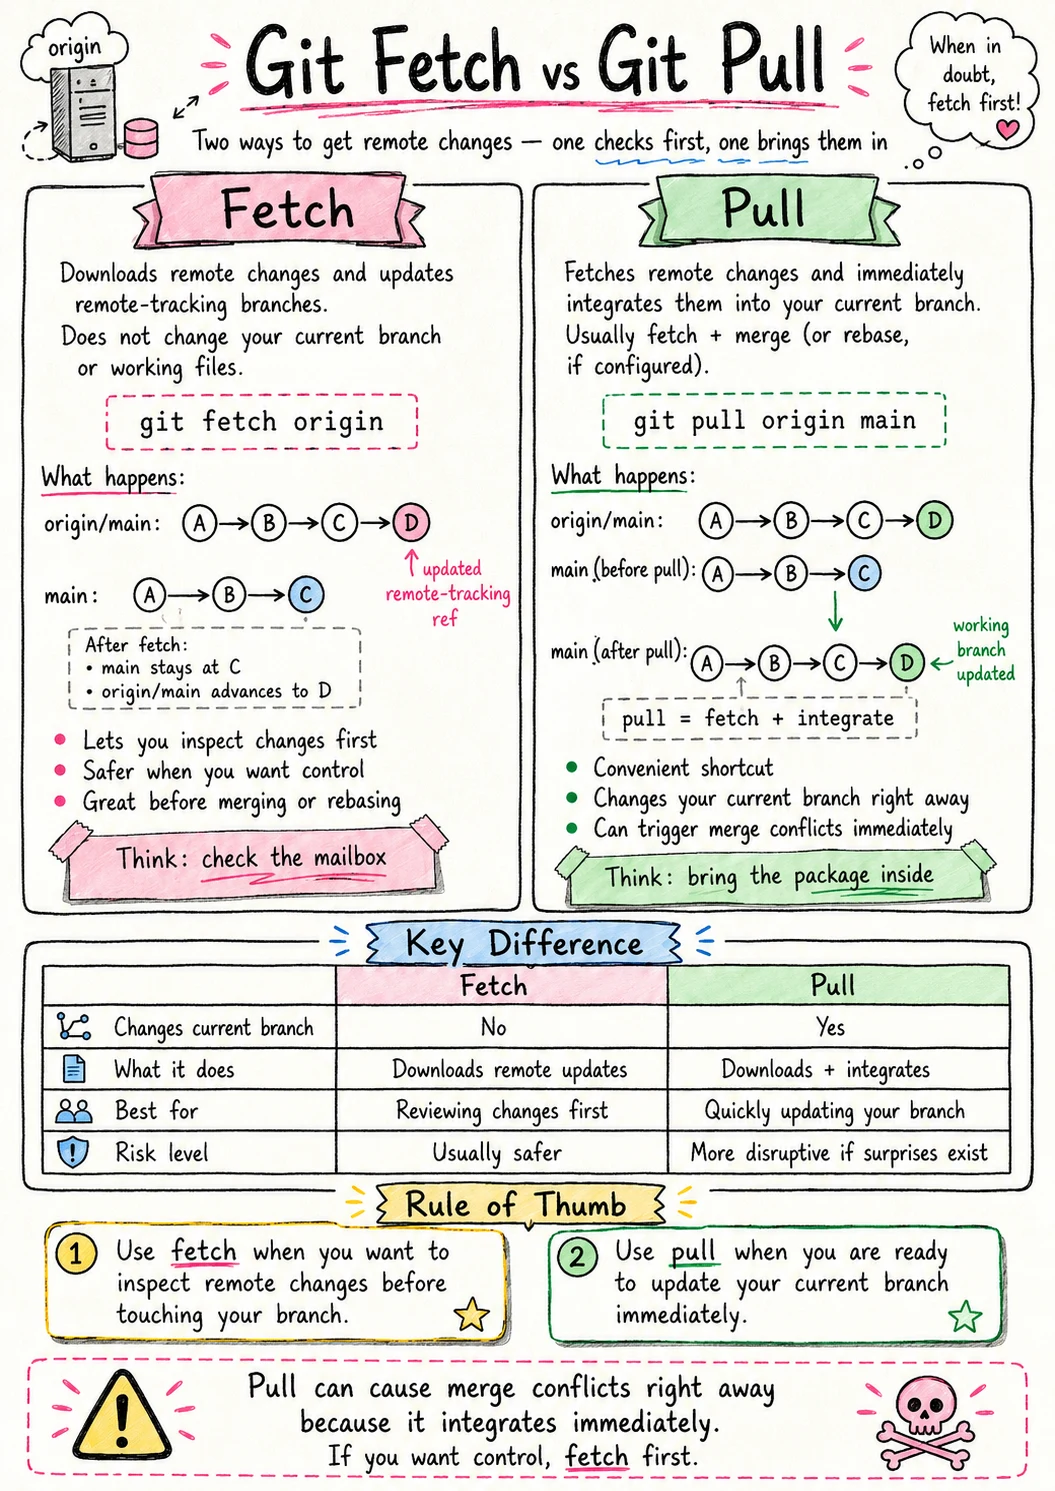 origin
Git Fetch vs Git Pull
When in
doubt,
fetch first!
Two ways to get remote changes — one checks first, one brings them in
Fetch
Downloads remote changes and updates
remote-tracking branches.
Does not change your current branch
or working files.
git fetch origin
What happens:
origin/main: A B C D
updated
remote-tracking
ref
main: A B C
After fetch:
• main stays at C
• origin/main advances to D
• Lets you inspect changes first
• Safer when you want control
• Great before merging or rebasing
Think: check the mailbox
Pull
Fetches remote changes and immediately
integrates them into your current branch.
Usually fetch + merge (or rebase,
if configured).
git pull origin main
What happens:
origin/main: A B C D
main (before pull): A B C
main (after pull): A B C D
working
branch
updated
pull = fetch + integrate
• Convenient shortcut
• Changes your current branch right away
• Can trigger merge conflicts immediately
Think: bring the package inside
Key Difference
Fetch Pull
Changes current branch No Yes
What it does Downloads remote updates Downloads + integrates
Best for Reviewing changes first Quickly updating your branch
Risk level Usually safer More disruptive if surprises exist
Rule of Thumb
1 Use fetch when you want to
inspect remote changes before
touching your branch.
2 Use pull when you are ready
to update your current branch
immediately.
Pull can cause merge conflicts right away
because it integrates immediately.
If you want control, fetch first.